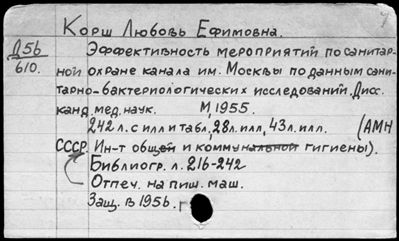 Корш Любовь Ефимовна.
Д56
610.
Эффективность мероприятий по санитар-
ной охране канала им. Москвы по данным сани-
тарно-бактериологических исследований. Дисс.
канд. мед. наук. М, 1955.
242 л. с илл и табл, 28л. илл, 43л. илл. (АМН
СССР. Ин-т общей и коммунальной гигиены).
Библиогр. л. 216-242
Отпеч. на пиш. маш.
Защ. в 1956. г